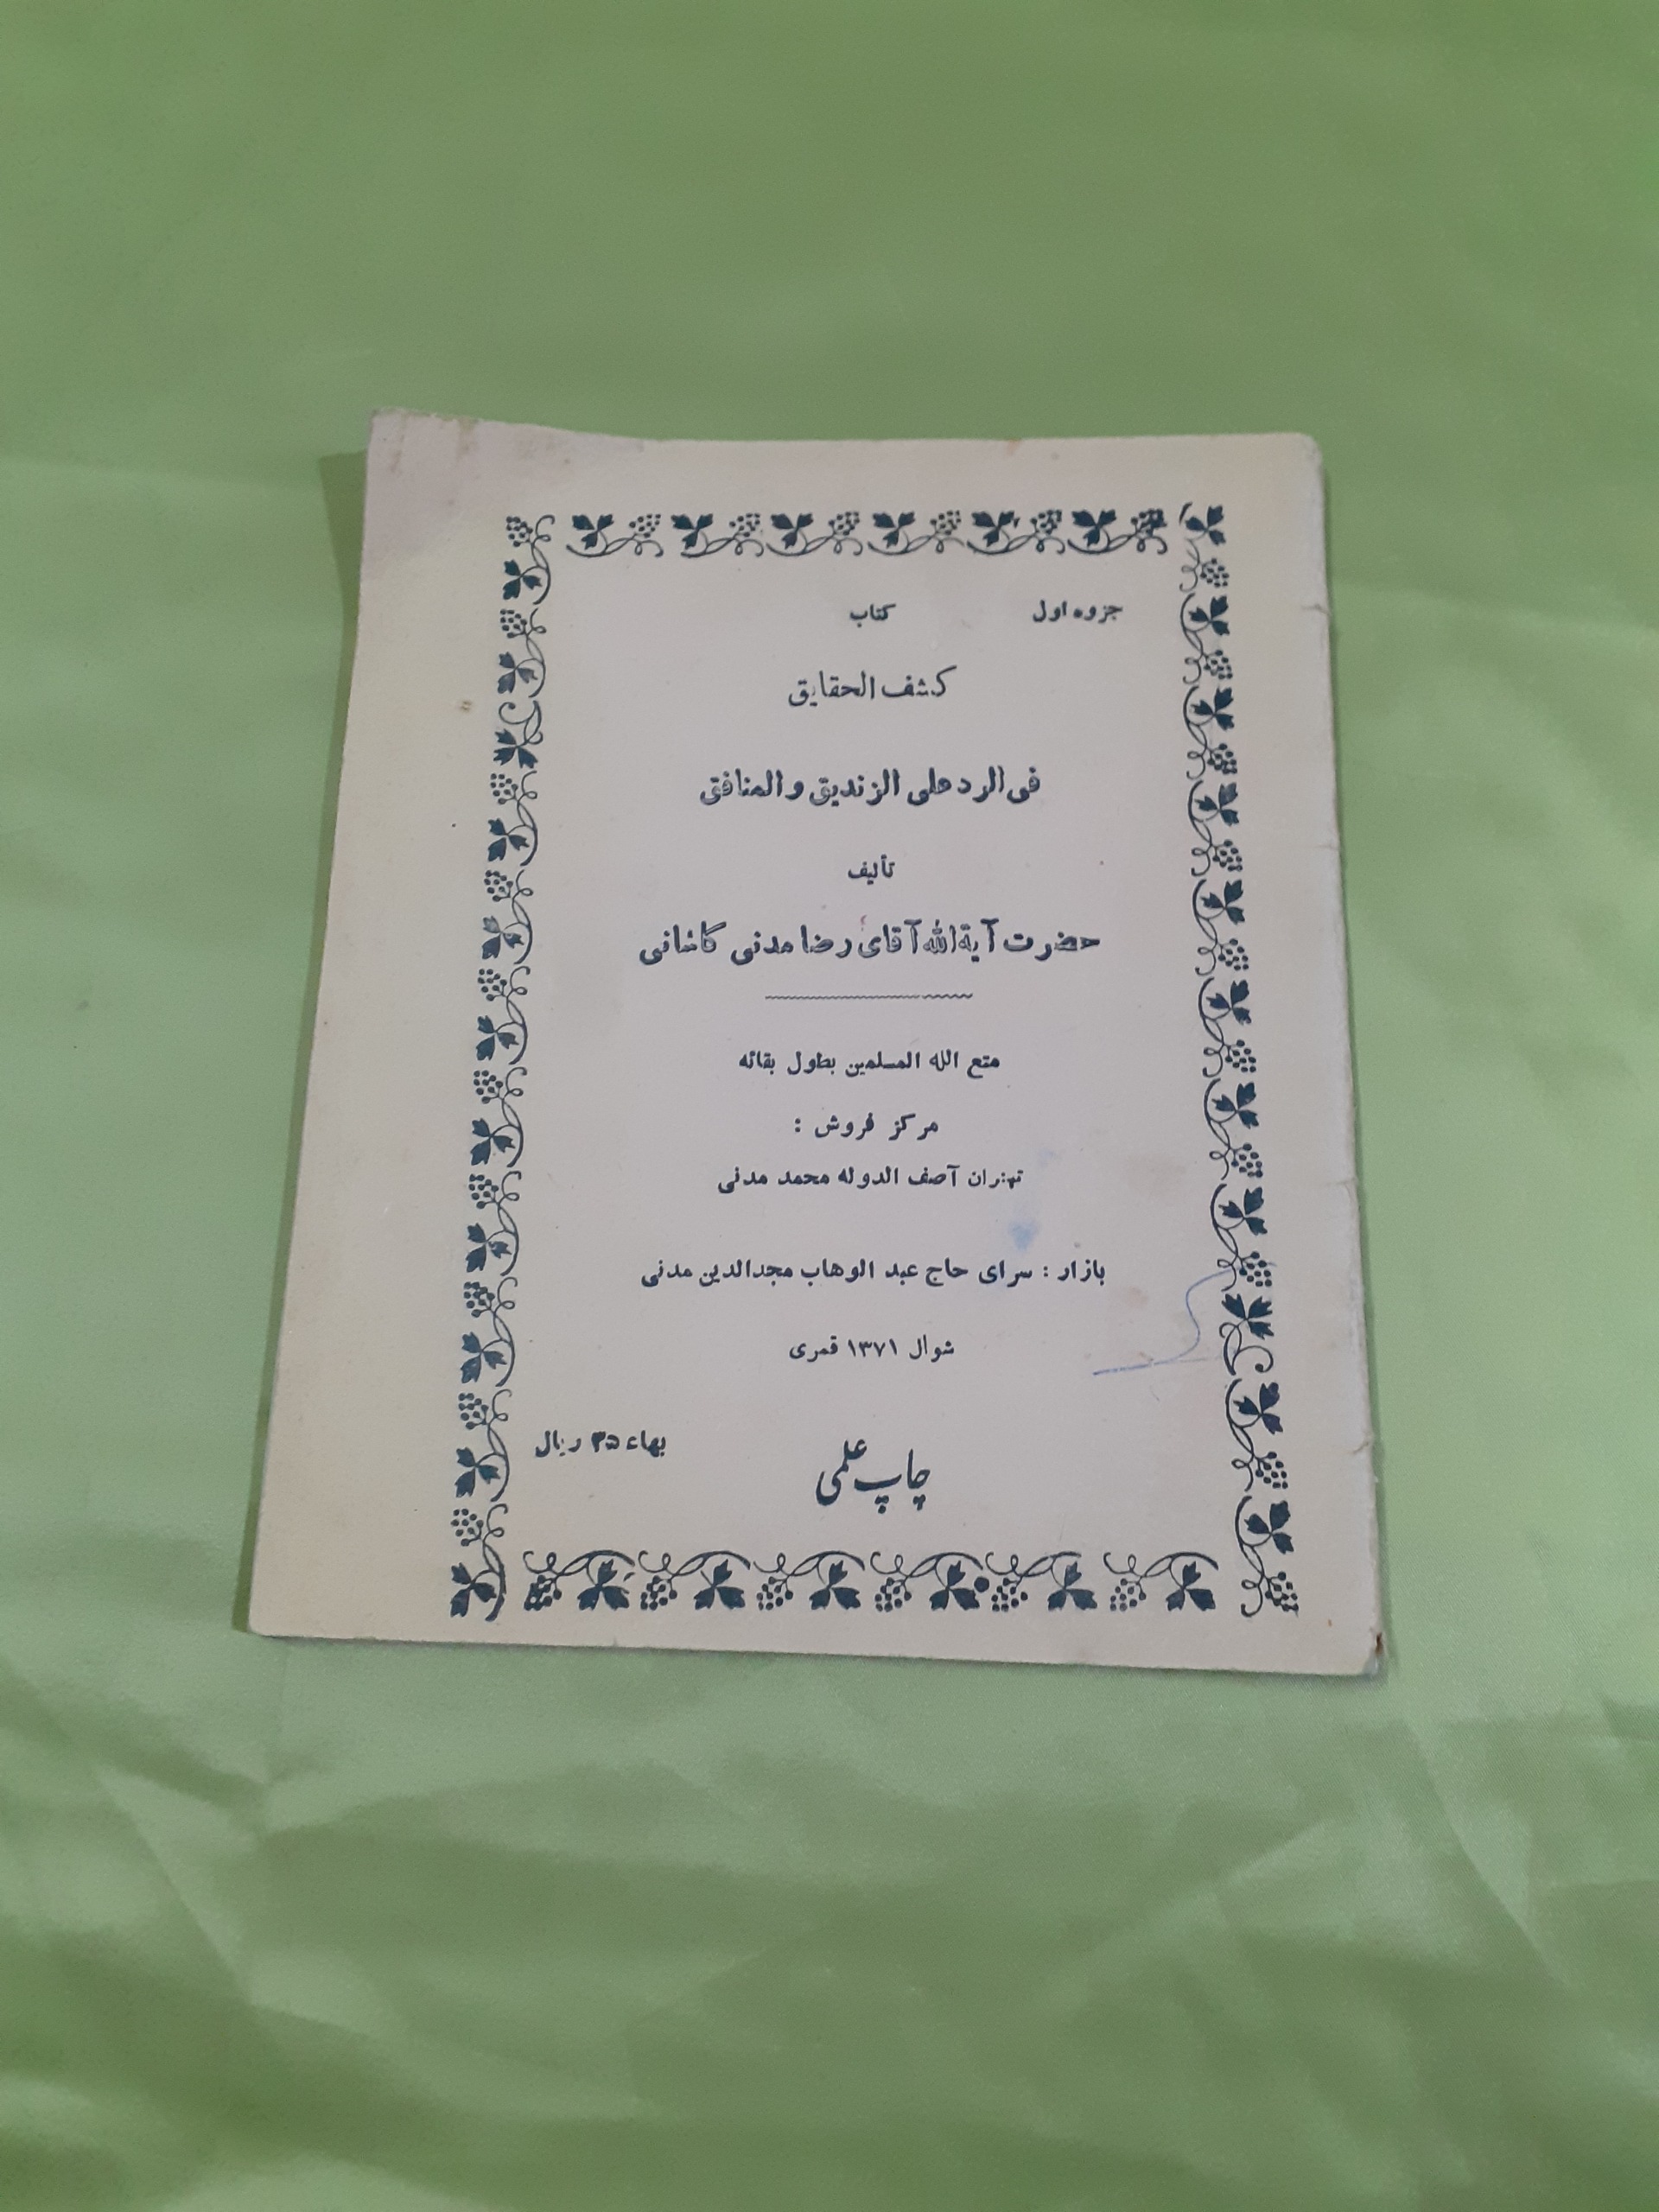 جزوه اول کتاب
کشف الحقایق
فی الرد علی الزندیق والمنافق
تألیف
حضرت آیة‌الله آقای رضا مدنی کاشانی
متع الله المسلمین بطول بقائه
مرکز فروش :
تهران آصف الدوله محمد مدنی
بازار : سرای حاج عبد الوهاب مجدالدین مدنی
شوال ۱۳۷۱ قمری
بهاء ۳۵ ریال
چاپ علمی